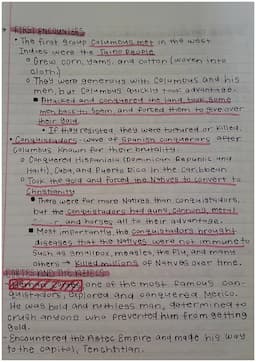 FIRST ENCOUNTERS
• The first group Columbus met in the West
Indies were the Taino People
○ Grew corn, yams, and cotton (woven into
cloth)
○ They were generous with Columbus and his
men, but Columbus quickly took advantage.
■ Attacked and conquered the land, took some
men back to Spain and forced them to give over
their gold.
• If they resisted, they were tortured or killed.
• Conquistadors - wave of Spanish conquerors after
Columbus known for their brutality.
○ Conquered Hispaniola (Dominican Republic and
Haiti), Cuba, and Puerto Rico in the Caribbean
○ Took the gold and forced the Natives to convert to
Christianity
■ There were far more Natives than conquistadors,
but the conquistadors had guns, cannons, metal
and horses all to their advantage.
■ Most importantly, the conquistadors brought
diseases that the Natives were not immune to
such as smallpox, measles, the flu, and many
others → killed millions of Natives over time.
CORTES AND THE AZTECS
one of the most famous con-
quistadors, explored and conquered Mexico.
He was bold and ruthless man, determined to
crush anyone who prevented him from getting
gold.
- Encountered the Aztec Empire and made his way
to the capitol, Tenochtitlan.